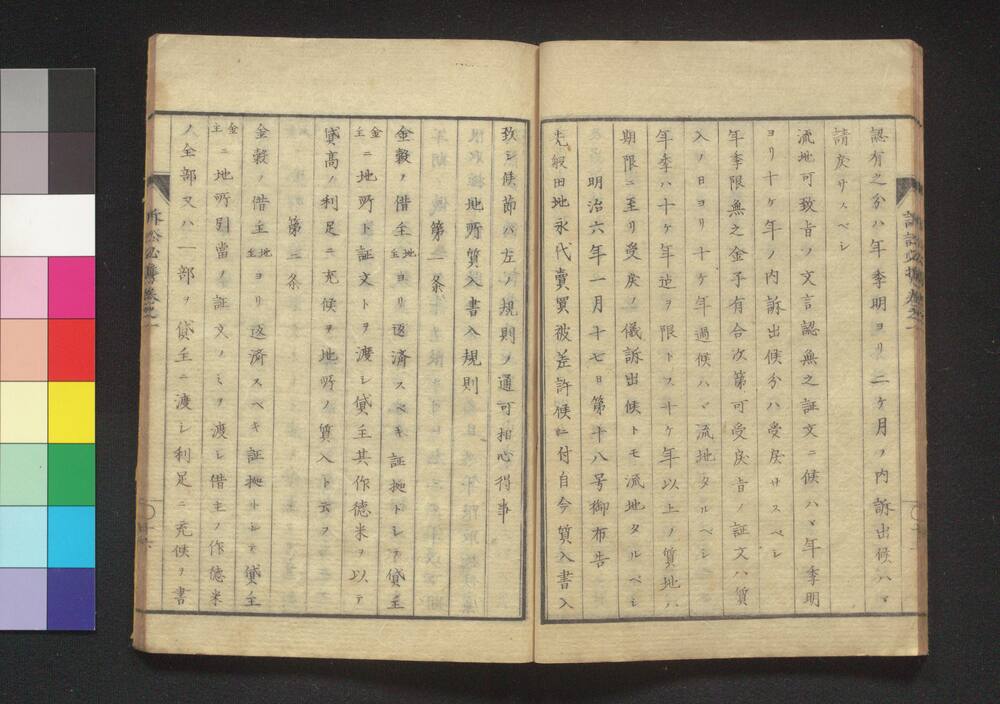 認有之分ハ年季明ヨリ二ケ月ノ内訴出候ハヾ
請戻サスベシ
流地可致旨ノ文言認無之証文ニ候ハヾ年季明
ヨリ十ケ年ノ内訴出候分ハ受戻サスベシ
年季限無之金子有合次第可受戻旨ノ証文ハ質
入ノ日ヨリ十ケ年過候ハヾ流地タルベシ
年季ハ十ケ年迄ヲ限トス十ケ年以上ノ質地ハ
期限ニ至リ受戻ノ儀訴出候トモ流地タルベシ
明治六年一月十七日第十八号御布告
先般田地永代賣買被差許候ニ付自今質入書入
致シ候節ハ左ノ規則ノ通可相心得事
地所質入書入規則
第一条
金穀ノ借主地主ヨリ返済スベキ証拠トシテ貸主
金主ニ地所ト証文トヲ渡シ貸主其作徳米ヲ以テ
貸高ノ利足ニ充候ヲ地所ノ質入ト云フ
第二条
金穀ノ借主地主ヨリ返済スベキ証拠トシテ貸主
金主ニ地所引當ノ証文ノミヲ渡シ借主ノ作徳米
ノ全部又ハ一部ヲ貸主ニ渡シ利足ニ充候ヲ書
訴訟必携巻之一